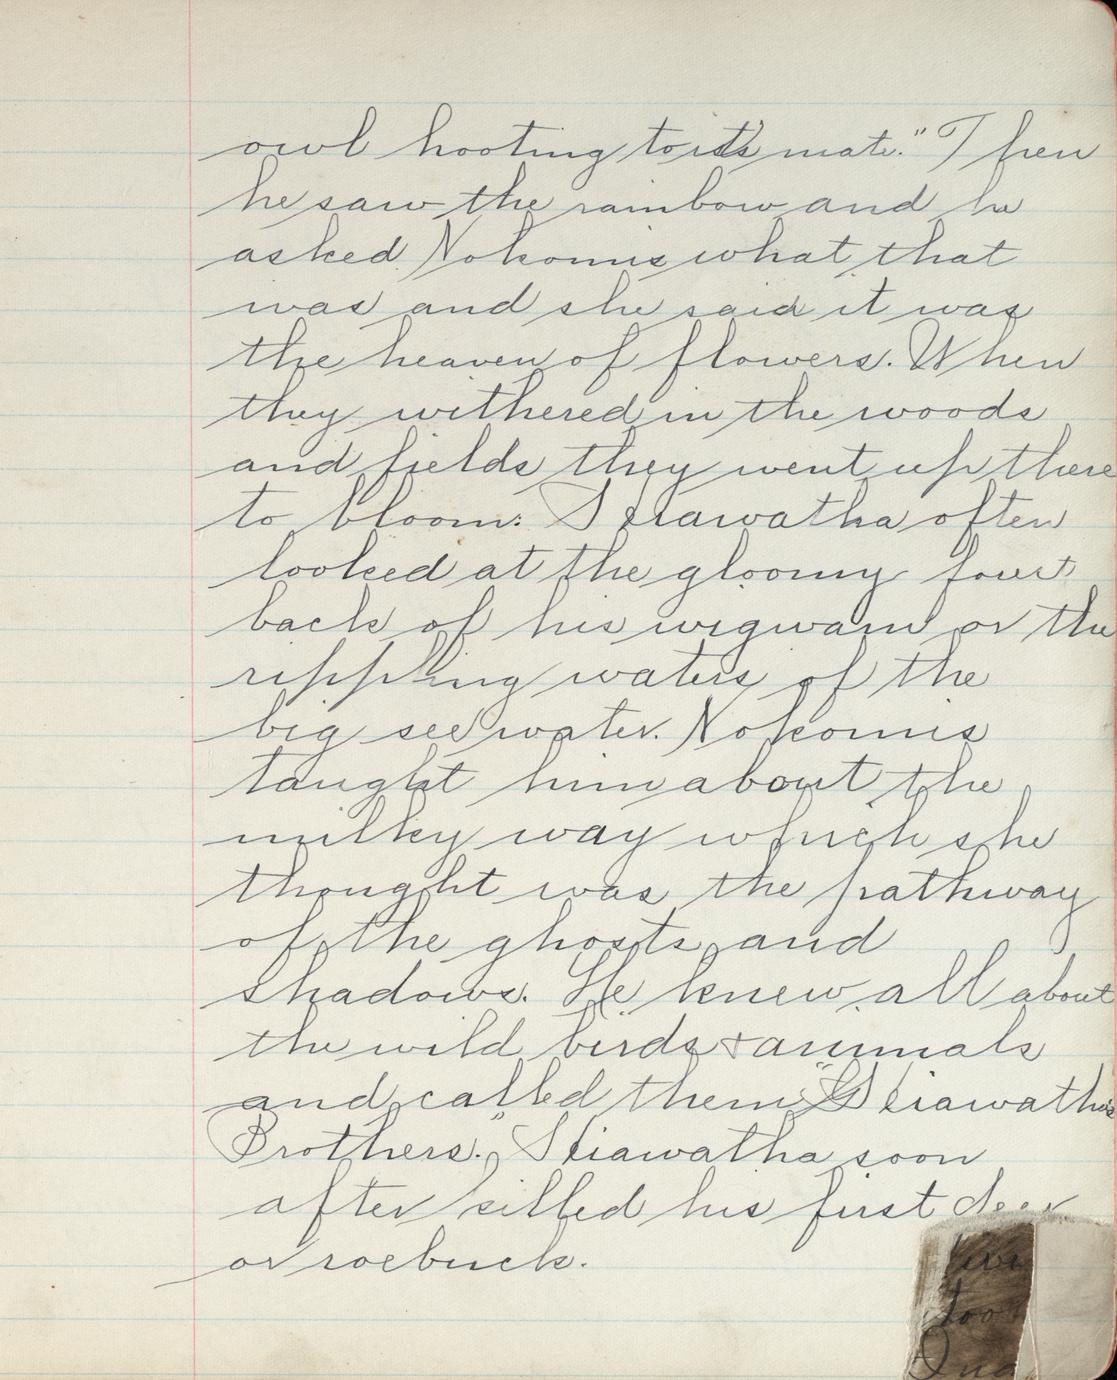 owl hooting to it's mate." Then
he saw the rainbow and he
asked Nokomis what that
was and she said it was
the heaven of flowers. When
they withered in the woods
and fields they went up there
to bloom. Hiawatha often
looked at the gloomy
back of his wigwam or the
rippling waters of the
big see water. Nokomis
taught him about the
milky way which she
thought was the pathway
of the ghosts and
shadows. He knew all about
the wild birds & animals
and called them "Hiawatha's
Brothers." Hiawatha soon
after killed his first deer
or roebuck.